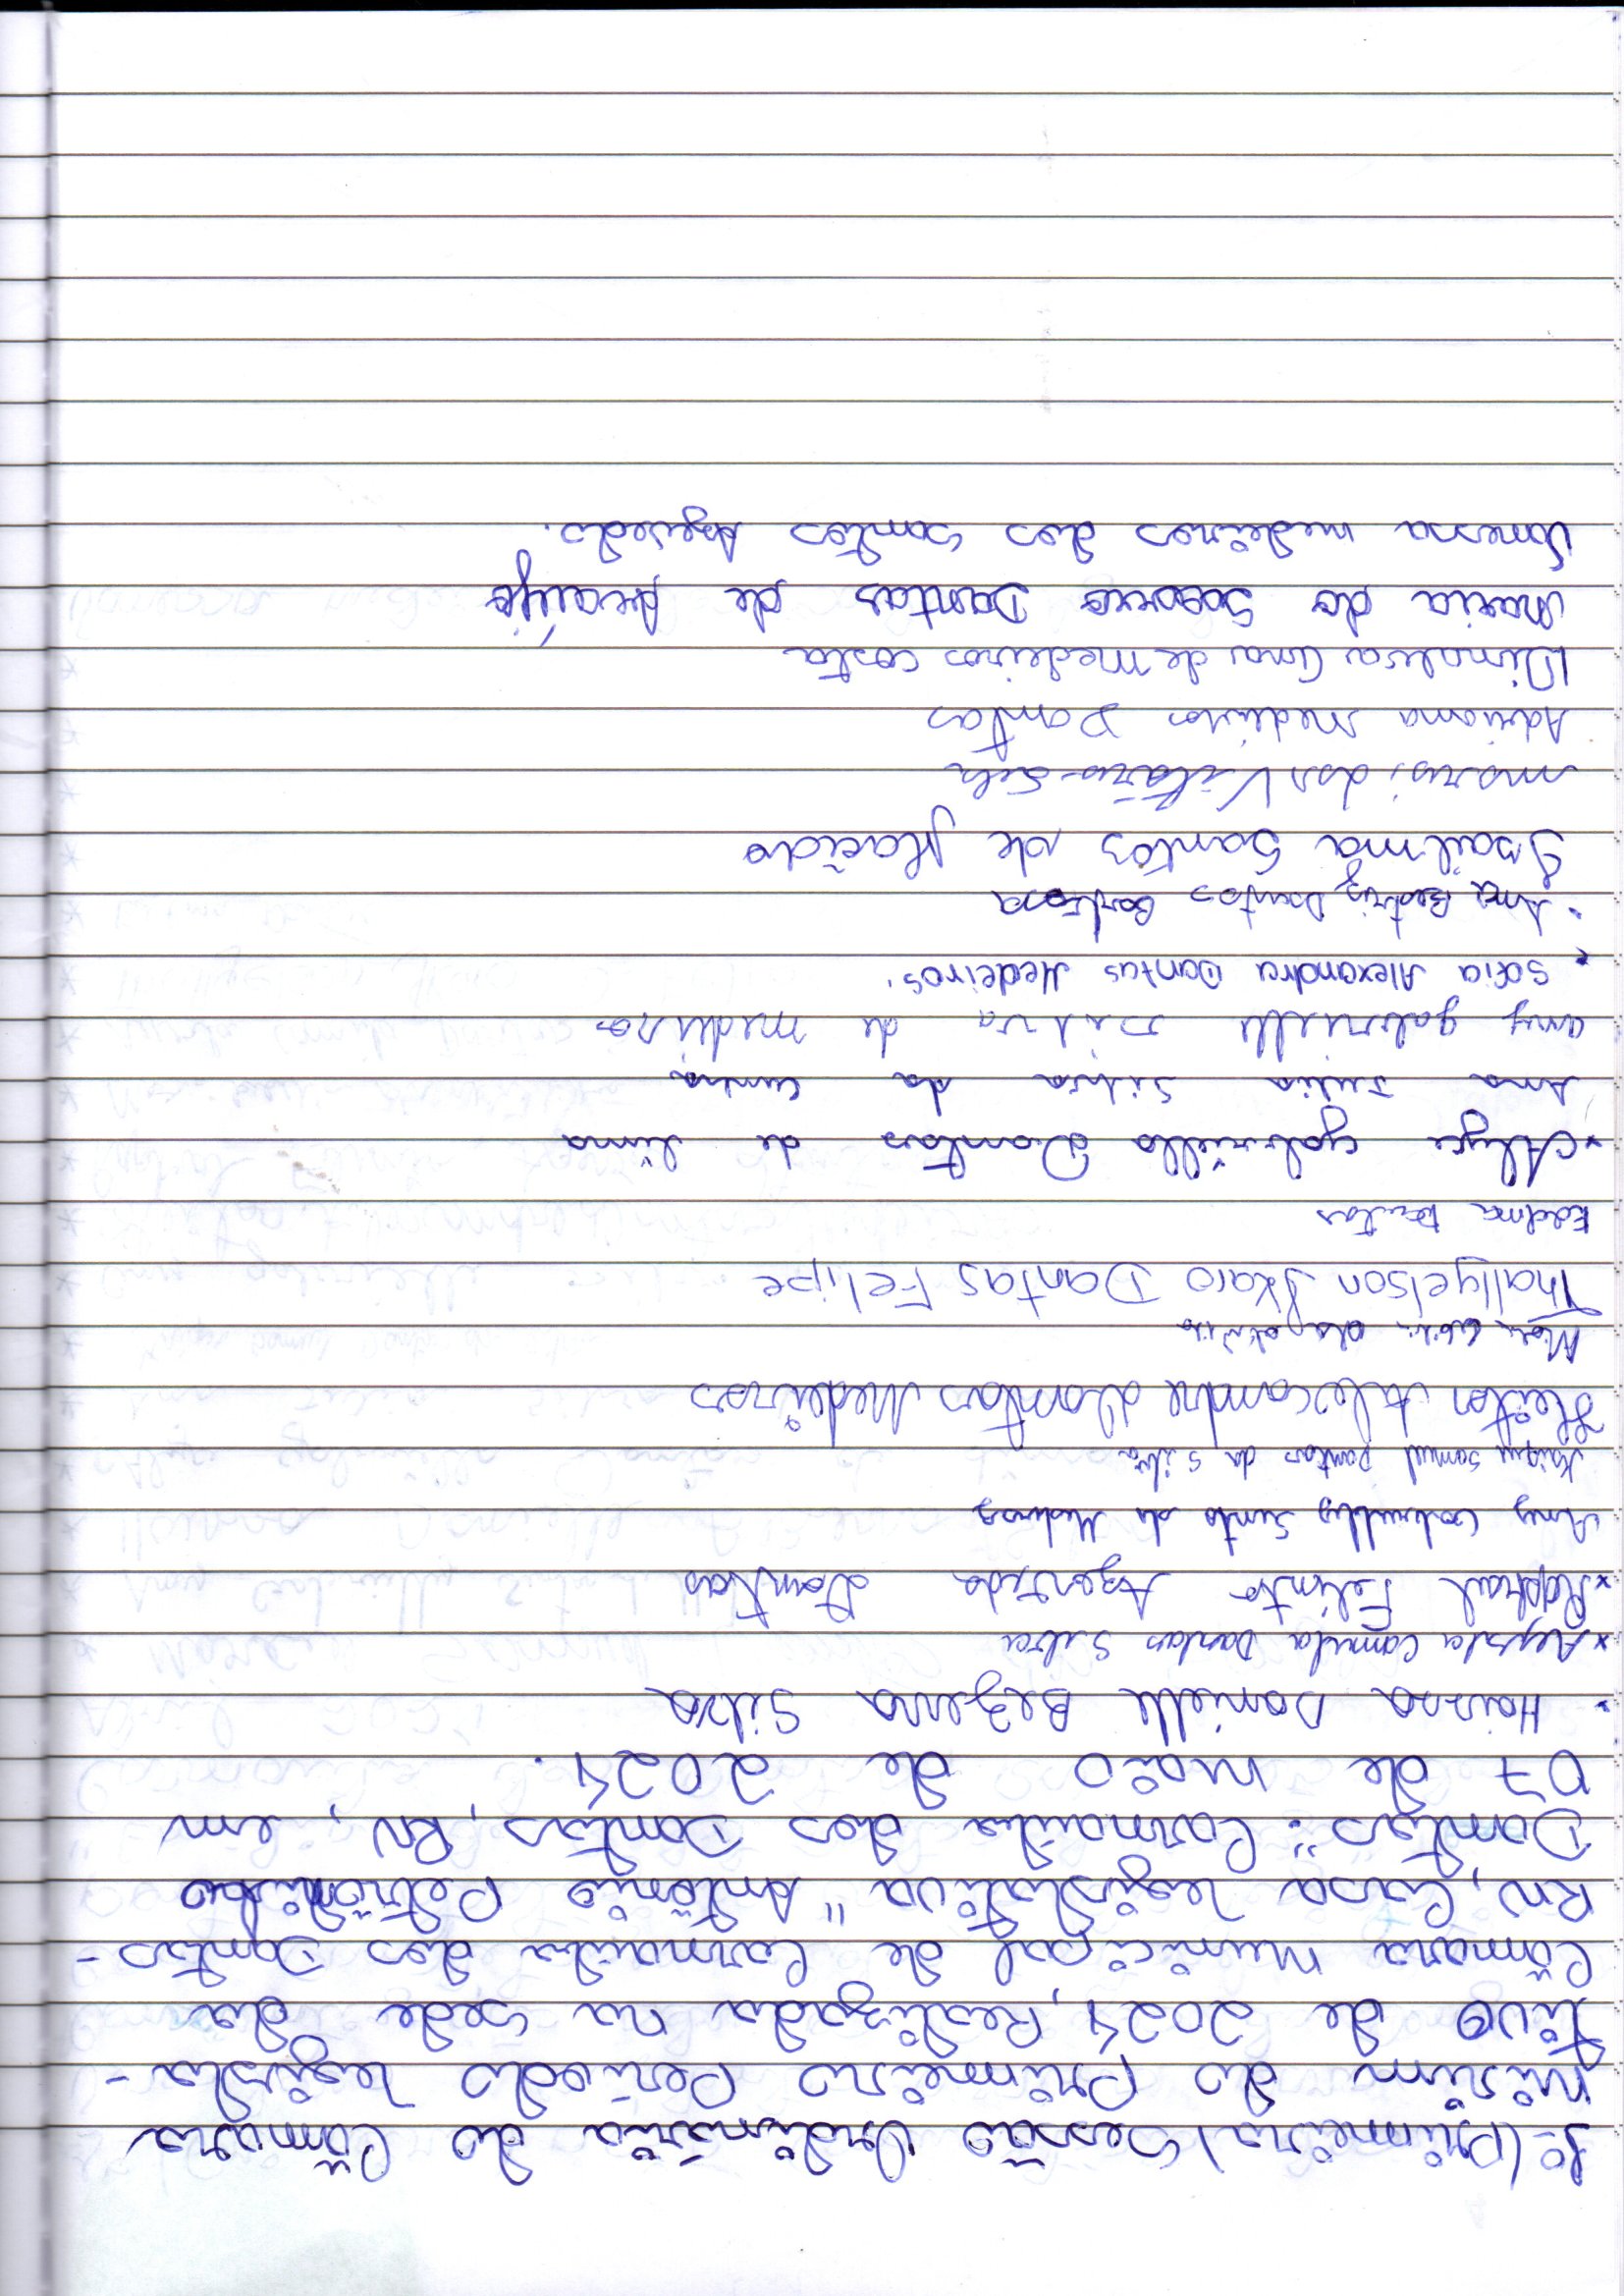 1ª (Primeira) Sessão Ordinária do Câmara
Mirim do Primeiro Período Legisla-
tivo de 2024, Realizada na sede da
Câmara Municipal de Carnaúba dos Dantas-
RN, Casa Legislativa "Antônio Petronilo
Dantas". Carnaúba dos Dantas, RN, em
07 de maio de 2024.
• Haissa Danielle Bezerra Silva
* Alysla Camila Dantas Silva
* Raphael Felinto Azevedo Dantas
Any Gabrielly Santos de Medeiros
Kaique Samuel Dantas da Silva
Heitor Alexandre Dantas Medeiros
Thallyelson Ykaro Dantas Felipe
Edelma Dantas
* Alyce Gabriella Dantas de Lima
Ana Julia Silva da Cunha
Any gabrielle Silva de medeiros
• Sofia Alexandra Dantas Medeiros.
• Ana Beatriz Dantas Barbosa
Isailma Santos de Macêdo
Adriana Medeiros Dantas
Dinalva Ana de Medeiros costa
Maria do Socorro Dantas de Araújo
Vanessa medeiros dos Santos Azevedo.